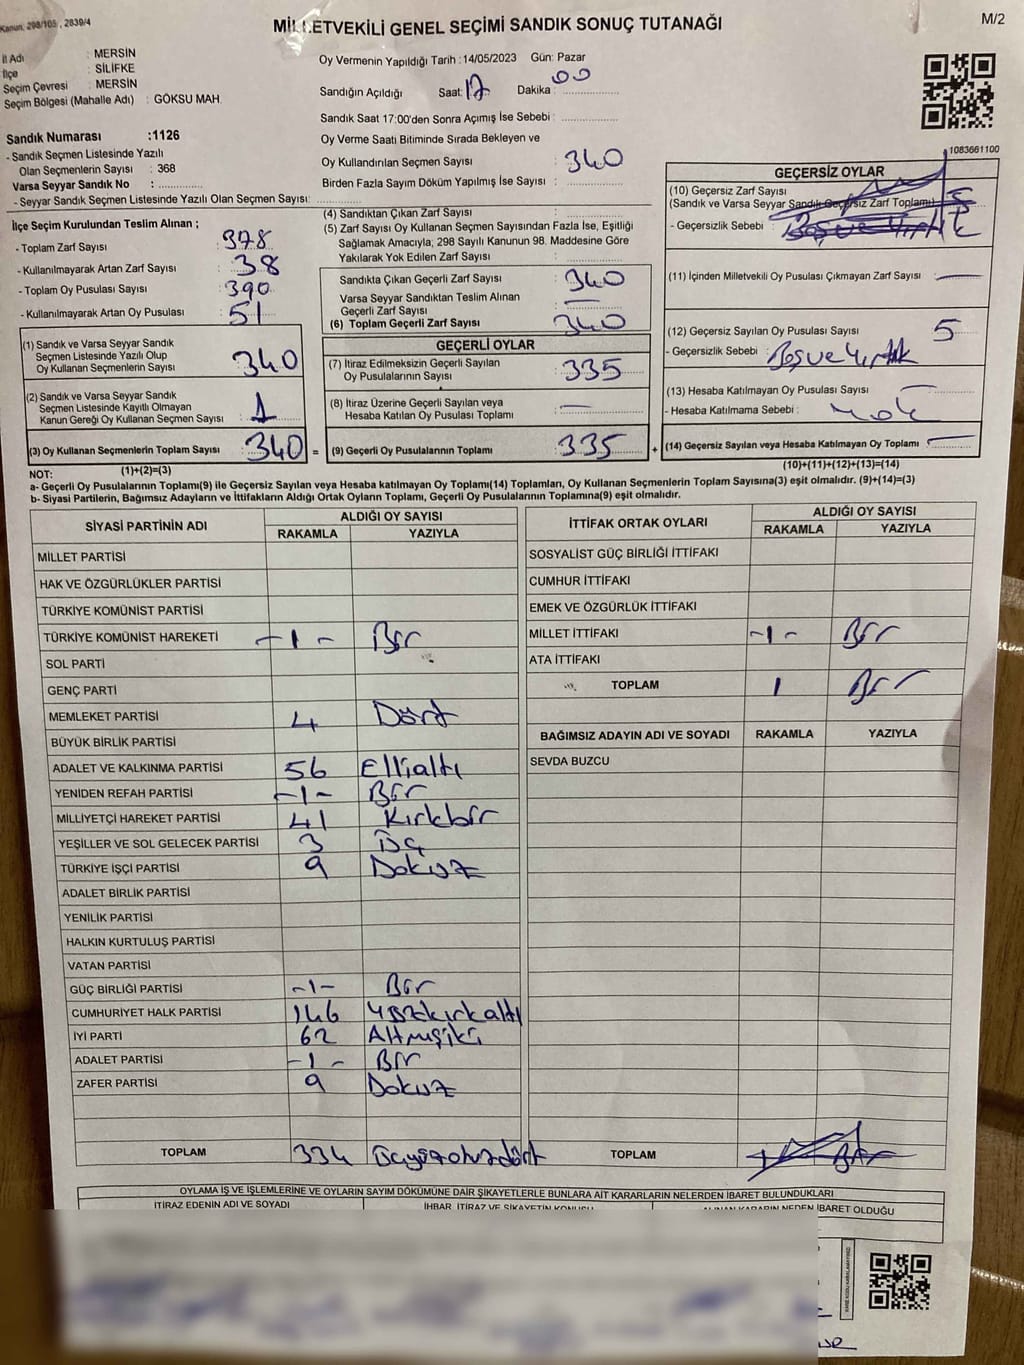 Kanun: 298/105 , 2839/4
MİLLETVEKİLİ GENEL SEÇİMİ SANDIK SONUÇ TUTANAĞI
M/2
İl Adı : MERSİN
İlçe : SİLİFKE
Seçim Çevresi : MERSİN
Seçim Bölgesi (Mahalle Adı) : GÖKSU MAH.
Sandık Numarası :1126
- Sandık Seçmen Listesinde Yazılı
Olan Seçmenlerin Sayısı : 368
Varsa Seyyar Sandık No :
- Seyyar Sandık Seçmen Listesinde Yazılı Olan Seçmen Sayısı:
Oy Vermenin Yapıldığı Tarih :14/05/2023 Gün: Pazar
Sandığın Açıldığı Saat: 17 Dakika : 00
Sandık Saat 17:00'den Sonra Açımış İse Sebebi :
Oy Verme Saati Bitiminde Sırada Bekleyen ve
Oy Kullandırılan Seçmen Sayısı : 340
Birden Fazla Sayım Döküm Yapılmış İse Sayısı :
1083661100
İlçe Seçim Kurulundan Teslim Alınan ;
- Toplam Zarf Sayısı : 378
- Kullanılmayarak Artan Zarf Sayısı : 38
- Toplam Oy Pusulası Sayısı : 390
- Kullanılmayarak Artan Oy Pusulası : 51
(1) Sandık ve Varsa Seyyar Sandık
Seçmen Listesinde Yazılı Olup
Oy Kullanan Seçmenlerin Sayısı : 340
(2) Sandık ve Varsa Seyyar Sandık
Seçmen Listesinde Kayıtlı Olmayan
Kanun Gereği Oy Kullanan Seçmen Sayısı : 1
(3) Oy Kullanan Seçmenlerin Toplam Sayısı : 340 =
(1)+(2)=(3)
(4) Sandıktan Çıkan Zarf Sayısı :
(5) Zarf Sayısı Oy Kullanan Seçmen Sayısından Fazla İse, Eşitliği
Sağlamak Amacıyla, 298 Sayılı Kanunun 98. Maddesine Göre
Yakılarak Yok Edilen Zarf Sayısı :
Sandıkta Çıkan Geçerli Zarf Sayısı : 340
Varsa Seyyar Sandıktan Teslim Alınan
Geçerli Zarf Sayısı : —
(6) Toplam Geçerli Zarf Sayısı : 340
GEÇERLİ OYLAR
(7) İtiraz Edilmeksizin Geçerli Sayılan
Oy Pusulalarının Sayısı : 335
(8) İtiraz Üzerine Geçerli Sayılan veya
Hesaba Katılan Oy Pusulası Toplamı : —
(9) Geçerli Oy Pusulalarının Toplamı : 335 +
GEÇERSİZ OYLAR
(10) Geçersiz Zarf Sayısı
(Sandık ve Varsa Seyyar Sandık Geçersiz Zarf Toplamı) :
- Geçersizlik Sebebi : Boş ve Yırtık
(11) İçinden Milletvekili Oy Pusulası Çıkmayan Zarf Sayısı : —
(12) Geçersiz Sayılan Oy Pusulası Sayısı : 5
- Geçersizlik Sebebi : Boş ve Yırtık
(13) Hesaba Katılmayan Oy Pusulası Sayısı : —
- Hesaba Katılmama Sebebi : Yok
(14) Geçersiz Sayılan veya Hesaba Katılmayan Oy Toplamı : —
(10)+(11)+(12)+(13)=(14)
NOT:
a- Geçerli Oy Pusulalarının Toplamı(9) ile Geçersiz Sayılan veya Hesaba katılmayan Oy Toplamı(14) Toplamları, Oy Kullanan Seçmenlerin Toplam Sayısına(3) eşit olmalıdır. (9)+(14)=(3)
b- Siyasi Partilerin, Bağımsız Adayların ve İttifakların Aldığı Ortak Oyların Toplamı, Geçerli Oy Pusulalarının Toplamına(9) eşit olmalıdır.
SİYASİ PARTİNİN ADI ALDIĞI OY SAYISI
RAKAMLA YAZIYLA
MİLLET PARTİSİ
HAK VE ÖZGÜRLÜKLER PARTİSİ
TÜRKİYE KOMÜNİST PARTİSİ
TÜRKİYE KOMÜNİST HAREKETİ -1- Bir
SOL PARTİ
GENÇ PARTİ
MEMLEKET PARTİSİ 4 Dört
BÜYÜK BİRLİK PARTİSİ
ADALET VE KALKINMA PARTİSİ 56 Ellialtı
YENİDEN REFAH PARTİSİ -1- Bir
MİLLİYETÇİ HAREKET PARTİSİ 41 Kırkbir
YEŞİLLER VE SOL GELECEK PARTİSİ 3 Üç
TÜRKİYE İŞÇİ PARTİSİ 9 Dokuz
ADALET BİRLİK PARTİSİ
YENİLİK PARTİSİ
HALKIN KURTULUŞ PARTİSİ
VATAN PARTİSİ
GÜÇ BİRLİĞİ PARTİSİ -1- Bir
CUMHURİYET HALK PARTİSİ 146 Yüzkırkaltı
İYİ PARTİ 62 Altmışiki
ADALET PARTİSİ -1- Bir
ZAFER PARTİSİ 9 Dokuz
TOPLAM 334 Üçyüzotuzdört
İTTİFAK ORTAK OYLARI ALDIĞI OY SAYISI
RAKAMLA YAZIYLA
SOSYALİST GÜÇ BİRLİĞİ İTTİFAKI
CUMHUR İTTİFAKI
EMEK VE ÖZGÜRLÜK İTTİFAKI
MİLLET İTTİFAKI -1- Bir
ATA İTTİFAKI
TOPLAM 1 Bir
BAĞIMSIZ ADAYIN ADI VE SOYADI RAKAMLA YAZIYLA
SEVDA BUZCU
TOPLAM
OYLAMA İŞ VE İŞLEMLERİNE VE OYLARIN SAYIM DÖKÜMÜNE DAİR ŞİKAYETLERLE BUNLARA AİT KARARLARIN NELERDEN İBARET BULUNDUKLARI
İTİRAZ EDENİN ADI VE SOYADI İHBAR, İTİRAZ VE ŞİKAYETİN KONUSU ALINAN KARARIN NEDEN İBARET OLDUĞU